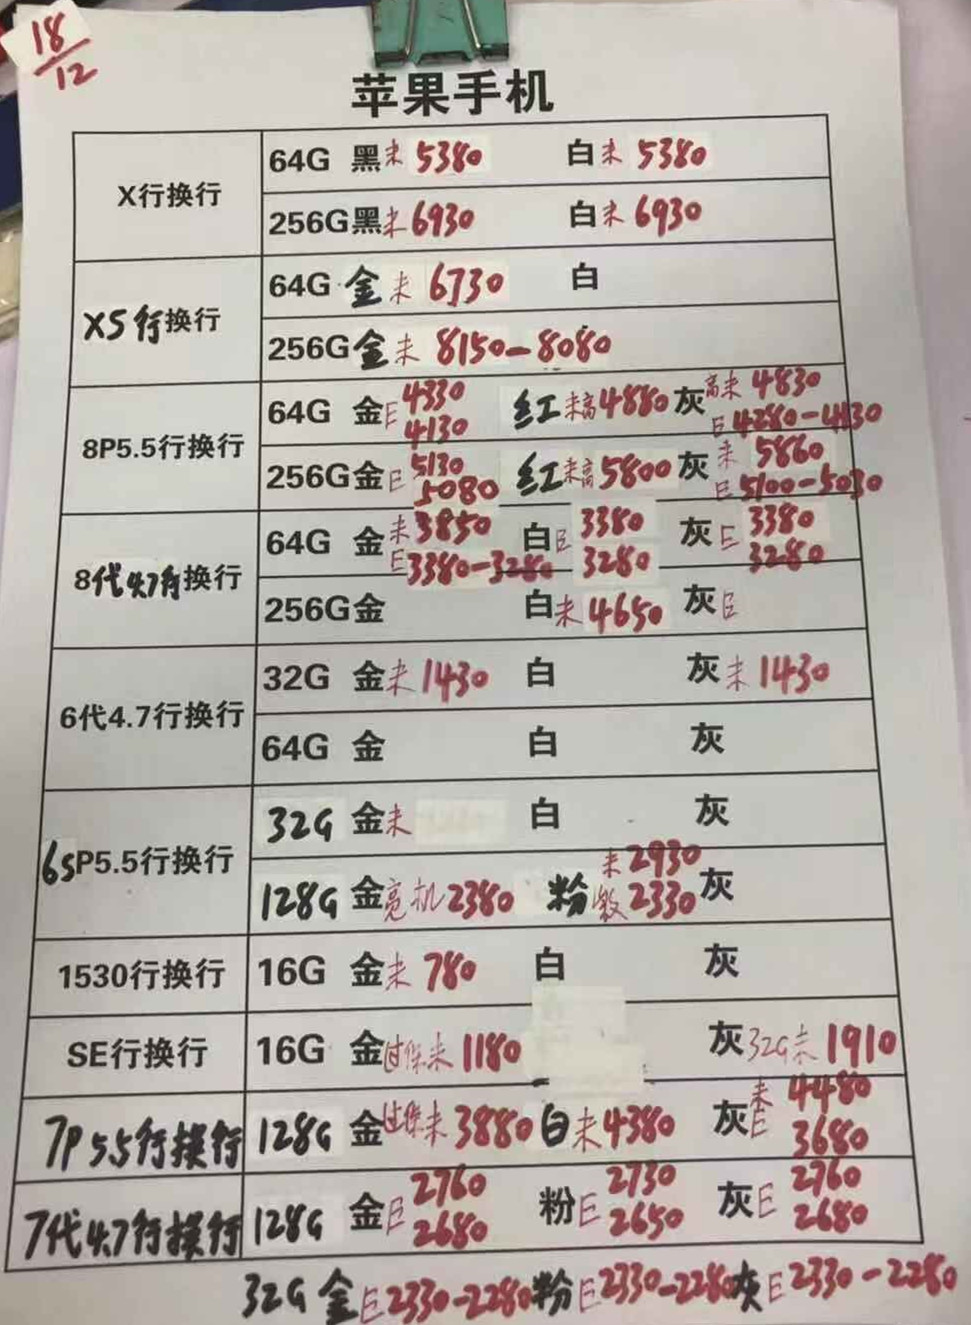 18/12
苹果手机
X行换行
64G 黑未 5380 白未 5380
256G黑未 6930 白未 6930
XS行换行
64G 金未 6730 白
256G金未 8150-8080
8P5.5行换行
64G 金E 4330 4130 红未高4880 灰高未 4830 E4280-4130
256G金E 5130 5080 红未高5800 灰未 5860 E5100-5030
8代4.7行换行
64G 金未3850 E3380-3280 白E 3380 3280 灰E 3380 3280
256G金 白未 4650 灰E
6代4.7行换行
32G 金未1430 白 灰未 1430
64G 金 白 灰
6sP5.5行换行
32G 金未 白 灰
128G 金亮机2380 粉未2930 2330 灰
1530行换行
16G 金未 780 白 灰
SE行换行
16G 金过保未 1180 灰32G未 1910
7P 5.5行换行
128G 金过保未 3880 白未4380 灰未 4480 E 3680
7代4.7行换行
128G 金E 2760 2680 粉E 2730 2650 灰E 2760 2680
32G 金E2330-2280 粉E2330-2280 灰E2330-2280